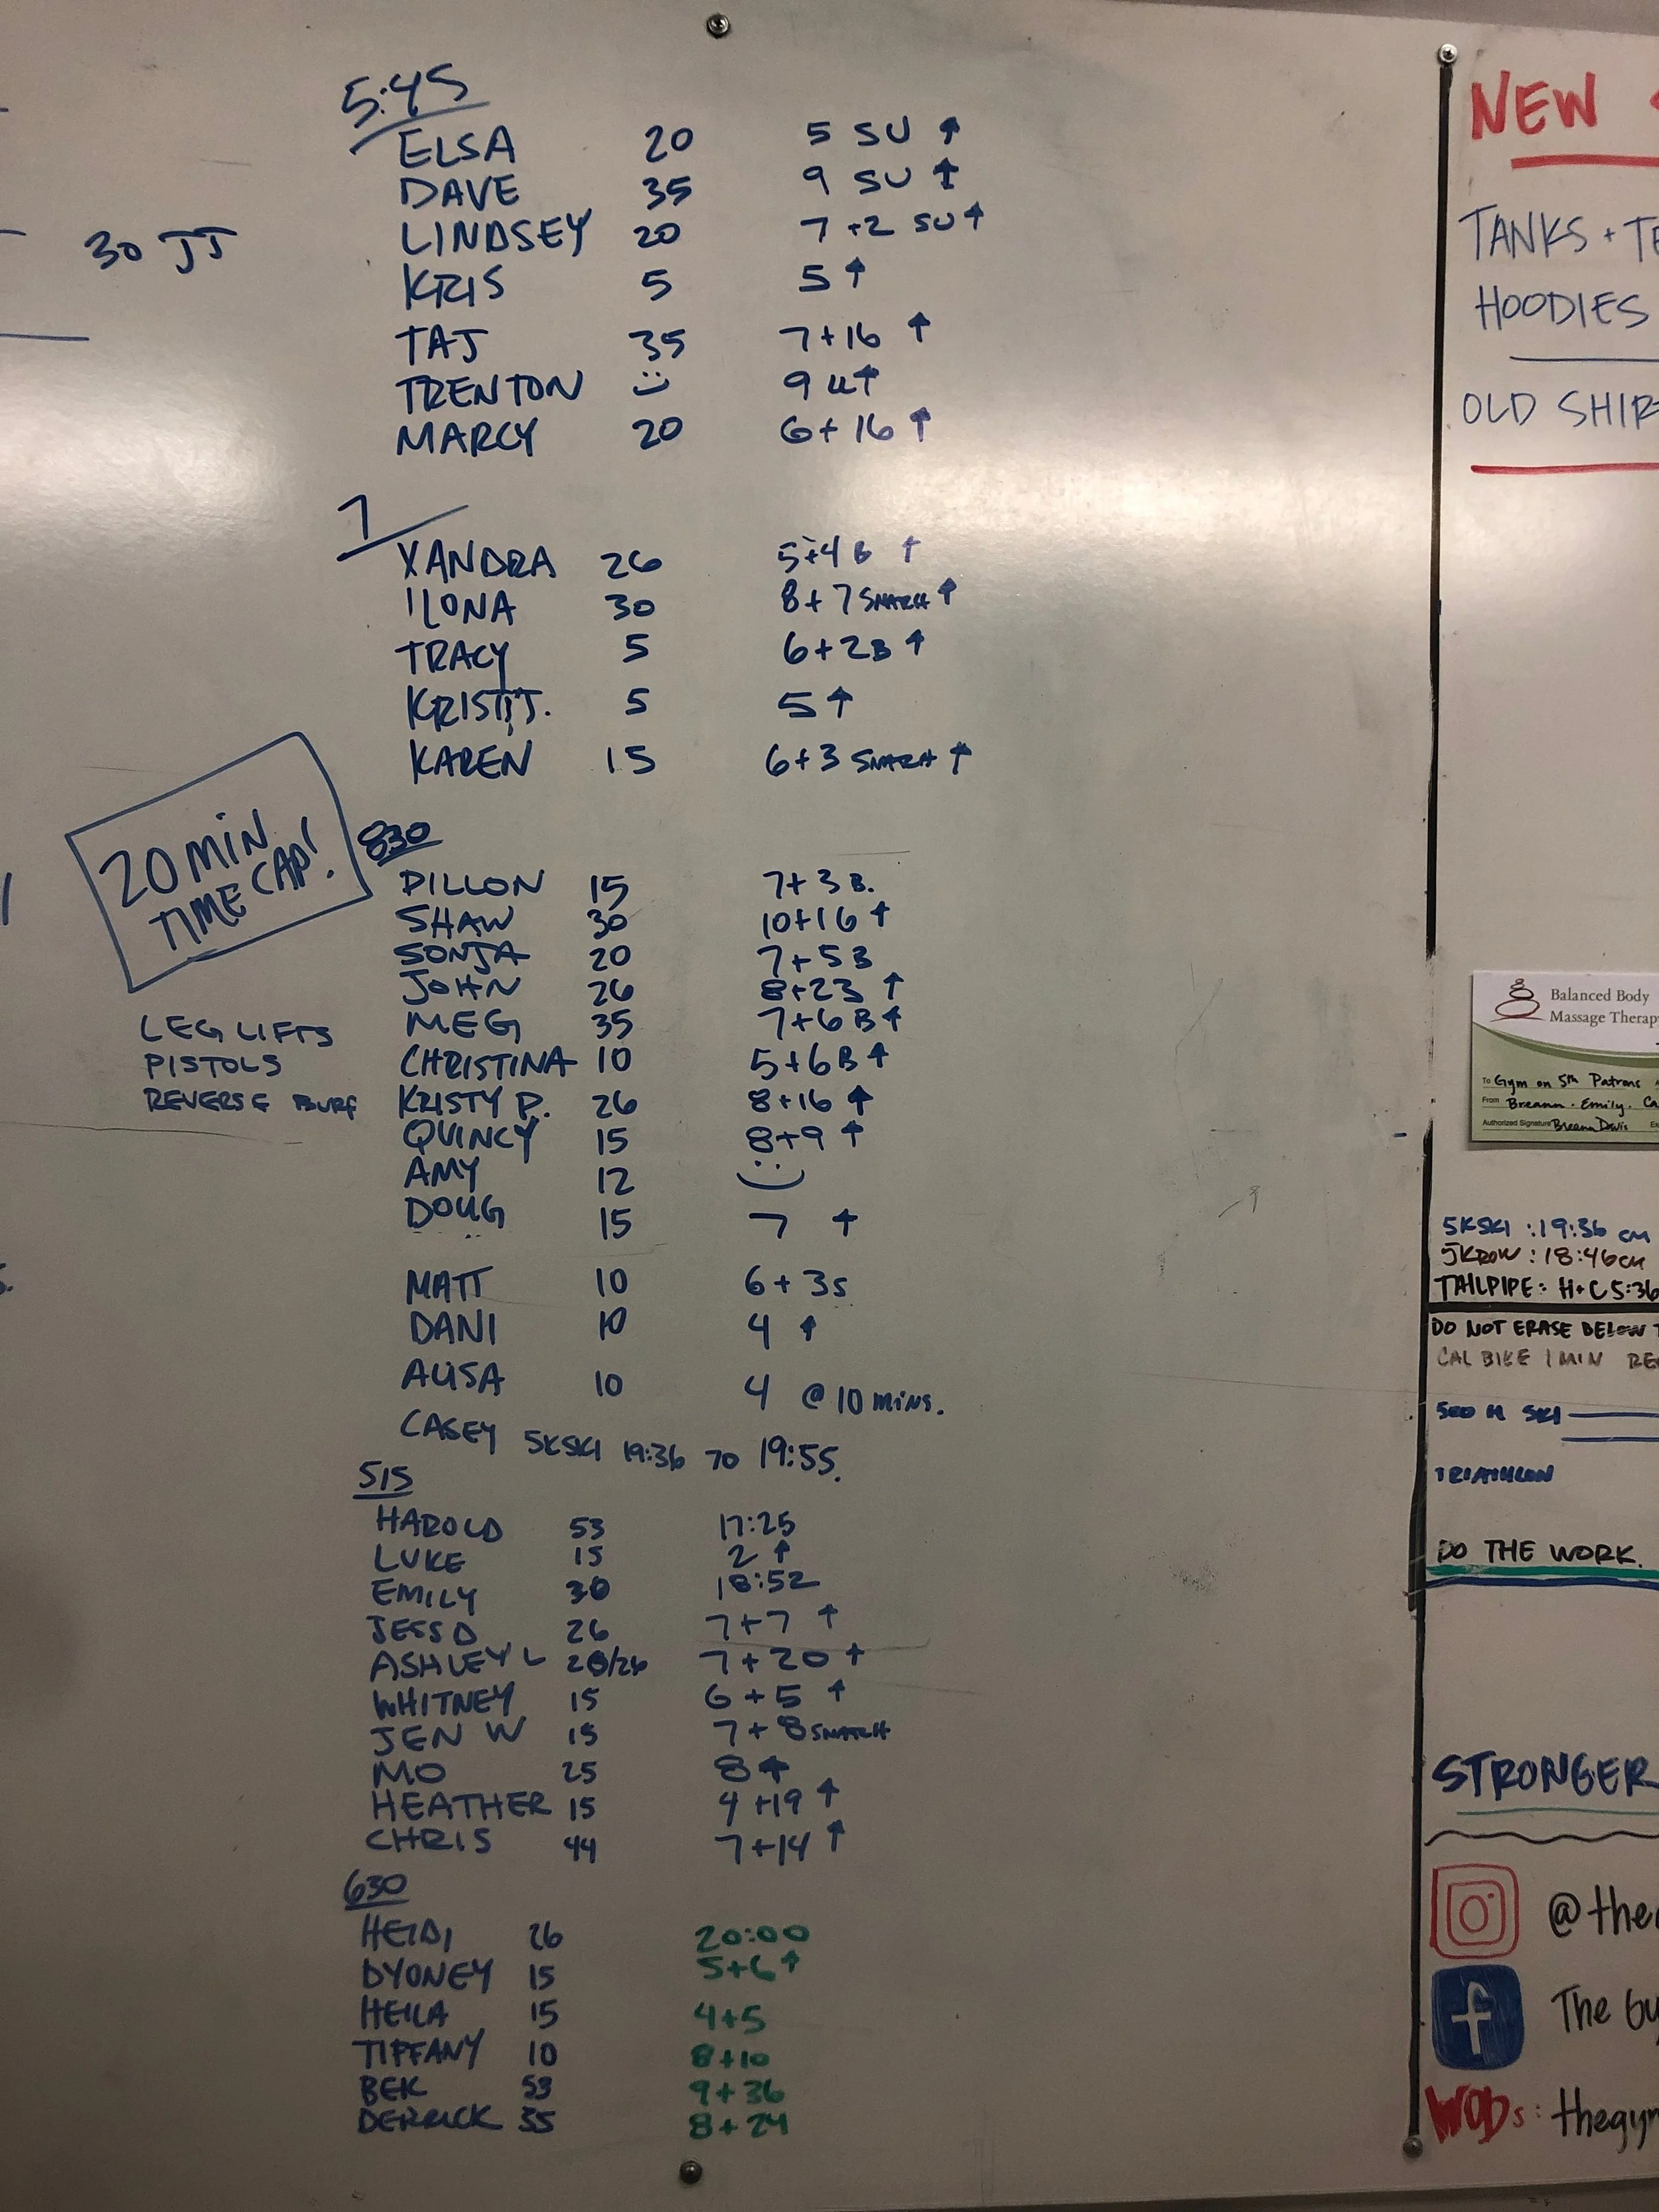 5:45
ELSA 20 5 SU ↑
DAVE 35 9 SU ↑
LINDSEY 20 7 +2 SU ↑
30 JJ
KRIS 5 5 ↑
TAJ 35 7+16 ↑
TRENTON 9 ↑
MARCY 20 6+16 ↑
7
XANDRA 26 5+4 B ↑
ILONA 30 8+7 SNATCH ↑
TRACY 5 6+2B ↑
KRISTI J. 5 5 ↑
KAREN 15 6+3 SNATCH ↑
20 MIN
TIME CAP!
830
DILLON 15 7+3 B.
SHAW 30 10+16 ↑
SONJA 20 7+5B
JOHN 26 8+23 ↑
MEG 35 7+6 B ↑
CHRISTINA 10 5+6B ↑
KRISTY P. 26 8+16 ↑
QUINCY 15 8+9 ↑
AMY 12
DOUG 15 7 ↑
LEG LIFTS
PISTOLS
REVERSE BURP
MATT 10 6+3S
DANI 10 4 ↑
ALISA 10 4 @ 10 MINS.
CASEY 5KSKI 19:36 TO 19:55.
515
HAROLD 53 17:25
LUKE 15 2 ↑
EMILY 30 18:52
JESS D 26 7+7 ↑
ASHLEY L 20/26 7+20 ↑
WHITNEY 15 6+5 ↑
JEN W 15 7+8 SNATCH
MO 25 8 ↑
HEATHER 15 4+19 ↑
CHRIS 44 7+14 ↑
630
HEIDI 26 20:00
DYONEY 15 5+6 ↑
HEILA 15 4+5
TIFFANY 10 8+10
BEK 53 9+36
DERRICK 35 8+24
NEW
TANKS + TE
HOODIES
OLD SHIR
Balanced Body
Massage Therapy
To Gym on 5th Patrons
From Breann · Emily · Ca
Authorized Signature Breann Davis Ex
5KSKI : 19:36 CM
5KROW : 18:46 CM
TAILPIPE : H+C 5:36
DO NOT ERASE BELOW T
CAL BIKE 1 MIN RE
500 M SKI
TRIATHLON
DO THE WORK.
STRONGER
@theg
The Gy
WODs: thegym